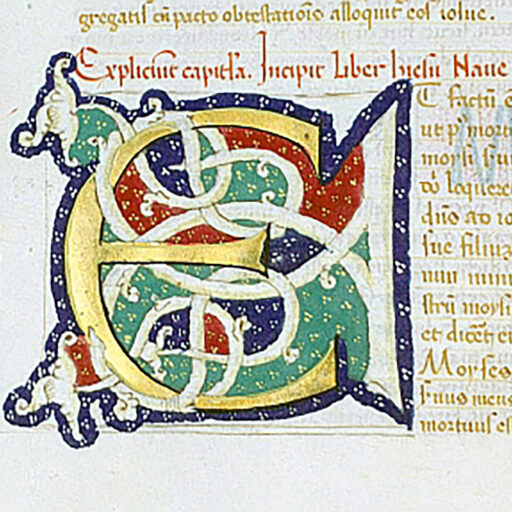 gregatis cū pacto obtestatiōis alloquit' eos iosue.
Expliciūt capitl'a. Incipit Liber hiesu Naue
E T factū
ut p' mort
moysi
loqueret
dn̄o ad
sue filiuʒ
nun mini
strū moysi
et dicēt ei
Moyses
s'uus meus
mortuus es